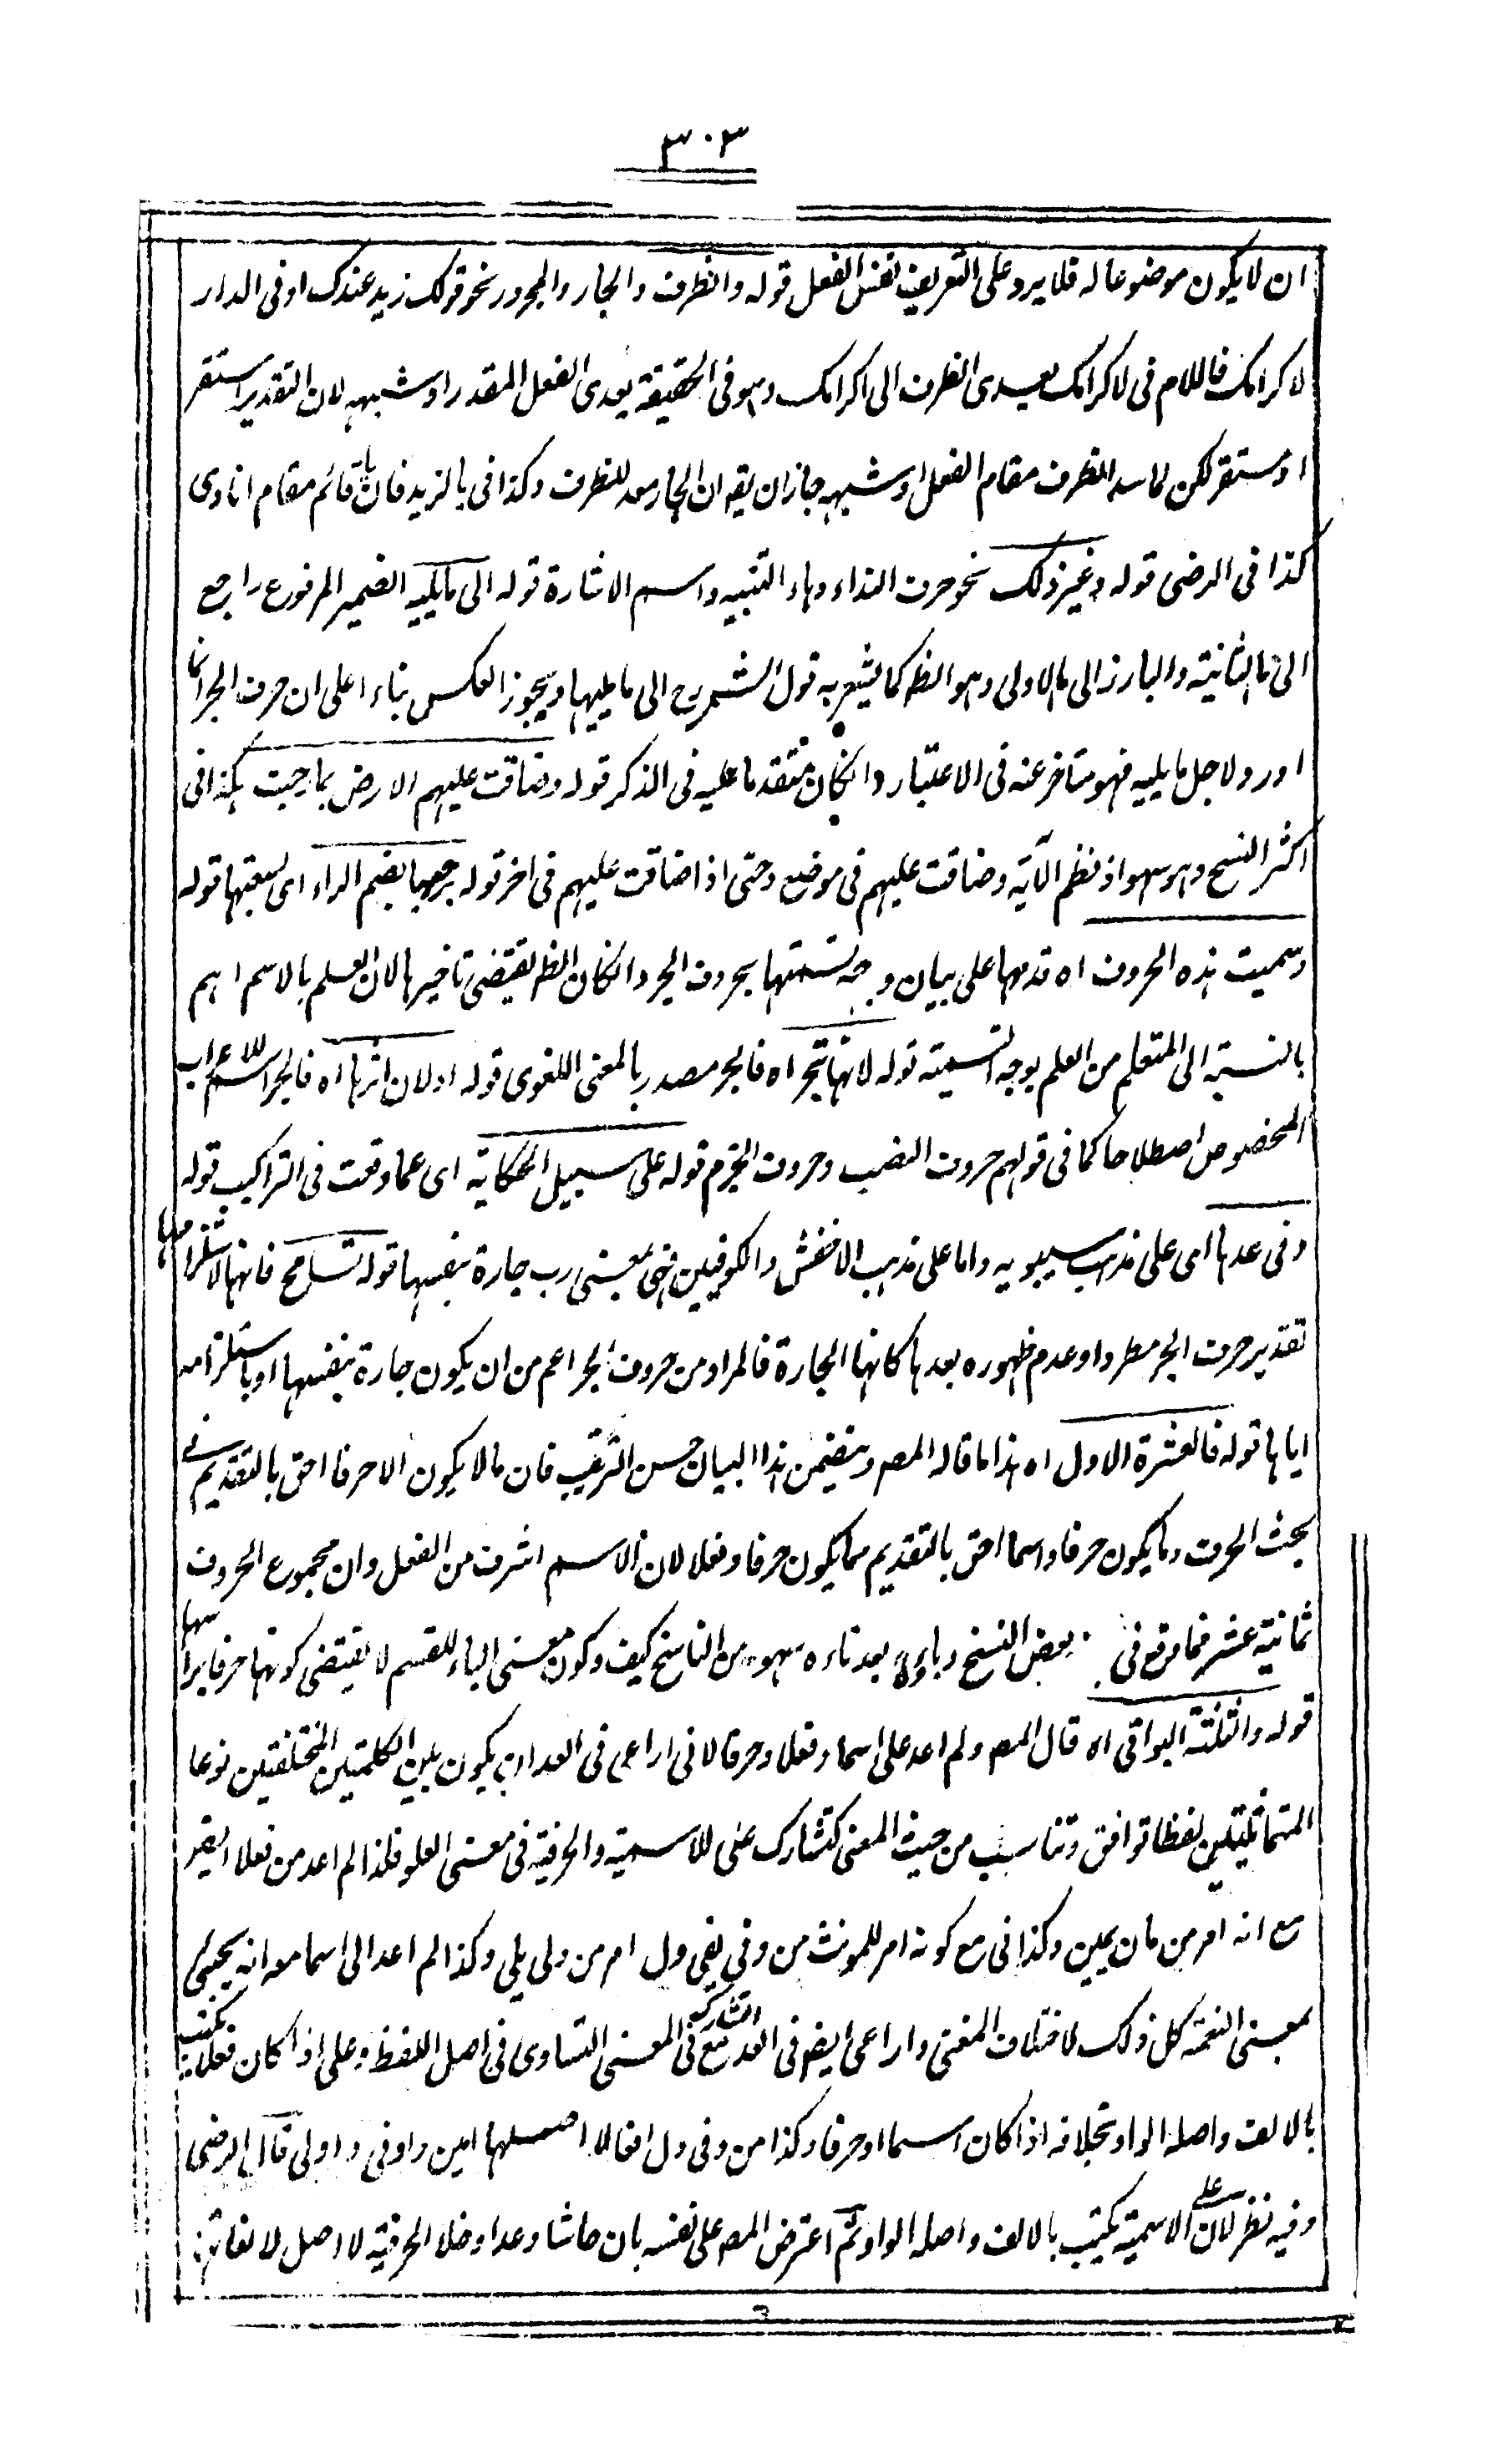 ٣٠٣
ان لا يكون موضوعا له فلا يرد على التعريف نفس الفعل قوله والظرف والجار والمجرور نحو قولك زيد عندك او فى الدار
لاكرامك فاللام فى لاكرامك يعدى الظرف الى اكرامك وهو فى الحقيقة يعدى الفعل المقدر او شبهه لان التقدير استقر
او مستقر لكن لما سد الظرف مقام الفعل او شبهه جاز ان يقه ان الجار معد للظرف وكذا فى يا لزيد فان يا قائم مقام انادى
كذا فى الرضى قوله وغير ذلك نحو حرف النداء وهاء التنبيه واسم الاشارة قوله الى ما يليه الضمير المرفوع راجع
الى ما الثانية والبارز الى ما الاولى وهو الظه كما يشعر به قول الشرح الى ما يليها ويجوز العكس بناء على ان حرف الجر انما
اورد لاجل ما يليه فهو متاخر عنه فى الاعتبار وانكان متقدما عليه فى الذكر قوله وضاقت عليهم الارض بما رحبت هكذا فى
اكثر النسخ وهو سهو اذ نظم الآية وضاقت عليهم فى موضع وحتى اذا ضاقت عليهم فى اخر قوله برحبها بضم الراء اى لسعتها قوله
وسميت هذه الحروف اه قدمها على بيان وجه تسميتها بحروف الجر وانكان الظه يقتضى تاخيرها لان العلم بالاسم اهم
بالنسبة الى المتعلم من العلم بوجه التسمية قوله لانها تجر اه فالجر مصدر بالمعنى اللغوى قوله او لان اثرها اه فالجر اسم للاعراب
المخصوص اصطلاحا كما فى قولهم حروف النصب وحروف الجزم قوله على سبيل الحكاية اى عما وقعت فى التراكيب قوله
وفى عدها اى على مذهب سيبويه واما على مذهب الاخفش والكوفيين فهى بمعنى رب جارة بنفسها قوله تسامح فانها لاستلزامها
تقدير حرف الجر مطردا وعدم ظهوره بعدها كانها الجارة فالمراد من حروف الجر اعم من ان يكون جارة بنفسها او باستلزامه
اياها قوله فالعشرة الاول اه هذا ما قاله المصه ويتضمن هذا البيان حسن الترتيب فان ما لا يكون الا حرفا احق بالتقديم فى
بحث الحرف وما يكون حرفا واسما احق بالتقديم مما يكون حرفا وفعلا لان الاسم اشرف من الفعل وان مجموع الحروف
ثمانية عشر فما وقع فى بعض النسخ وباؤه بعد تاءه سهو من الناسخ كيف وكون معنى الباء للقسم لا يقتضى كونها حرفا براسها
قوله والثلثة البواقى اه قال المصه ولم اعد على اسما وفعلا وحرفا لانى اراعى فى العد ان يكون بين الكلمتين المختلفتين نوعا
المتماثلتين لفظا توافق وتناسب من حيث المعنى كتشارك على للاسمية والحرفية فى معنى العلو فلذا لم اعد من فعلا ايضا
مع انه امر من مان يمين وكذا فى مع كونه امر للمونث من وفى يفى ول امر من ولى يلى وكذا لم اعد الى اسما مع انه يجيئ
بمعنى النعمة كل ذلك لاختلاف المعنى واراعى ايضا فى العد مع التشارك فى المعنى التساوى فى اصل اللفظ وعلى اذا كان فعلا يكتب
بالالف واصله الواو بخلافه اذا كان اسما او حرفا وكذا من وفى ول افعالا اصلها امين واوفى واولى قال الرضى
وفيه نظر لان على الاسمية يكتب بالالف واصله الواو ثم اعترض المصه على نفسه بان حاشا وعدا وخلا الحرفية لا اصل لالفاتها